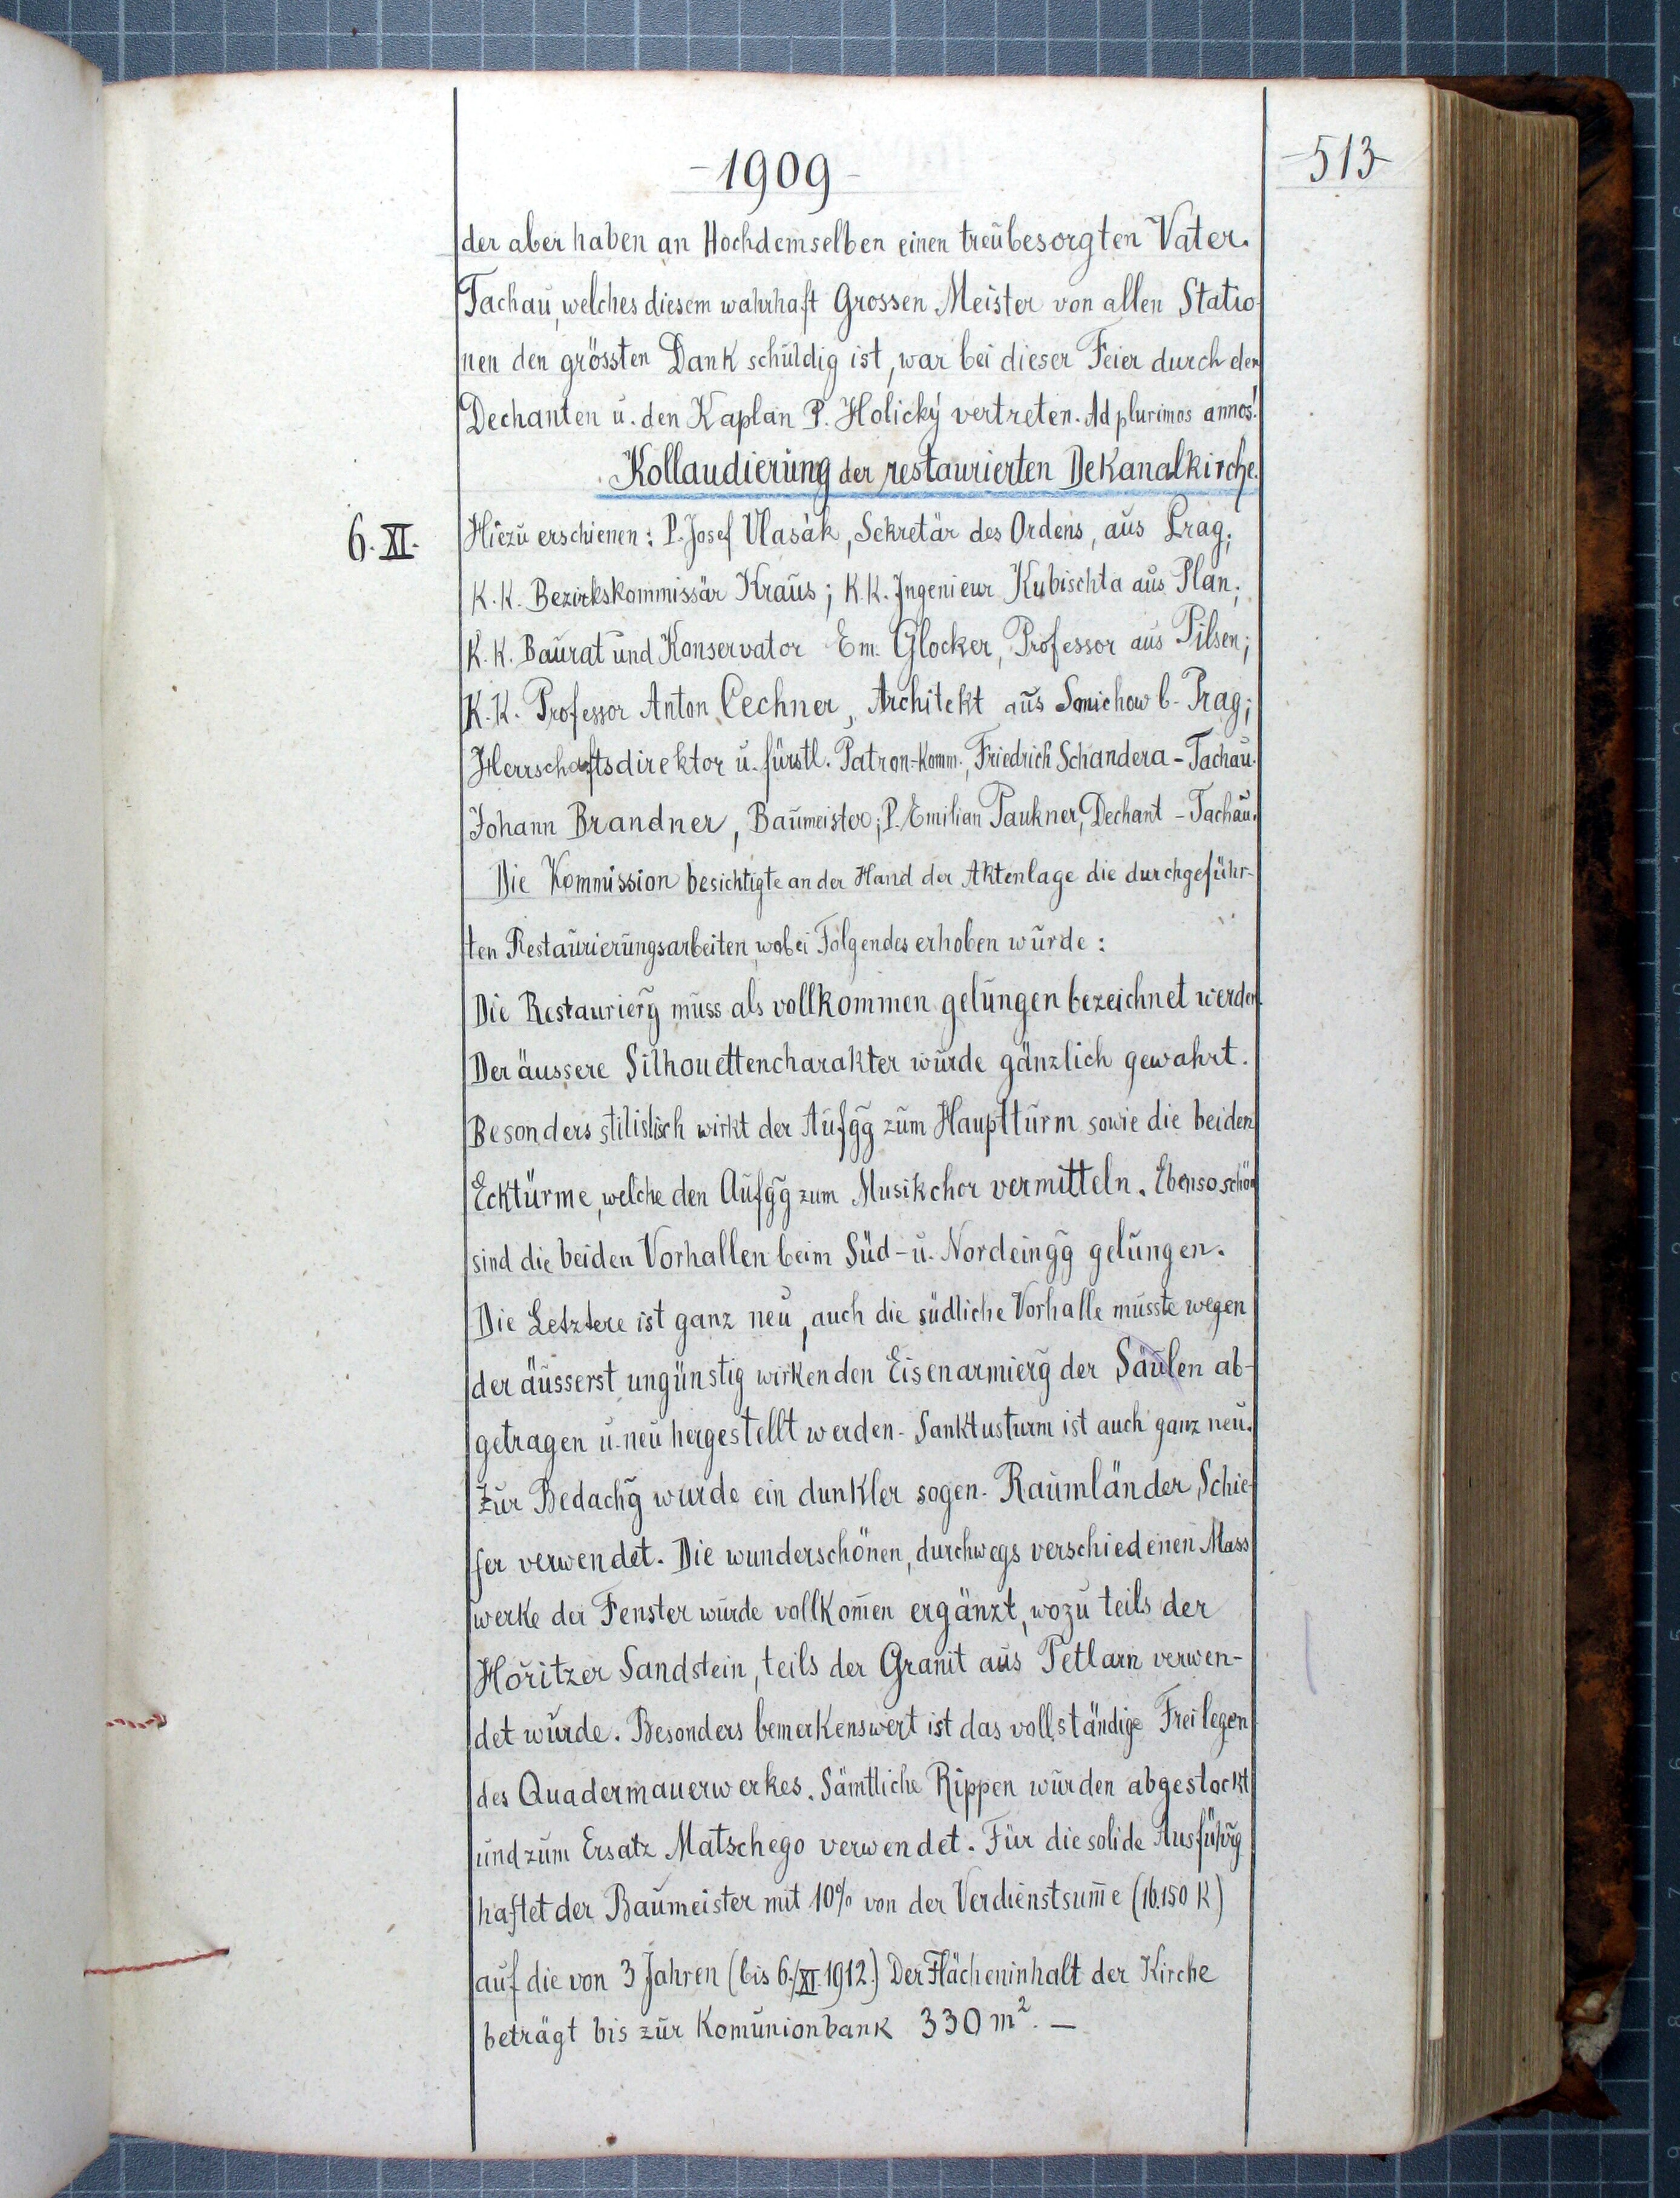 -1909-
-513-
der aber haben an Hochdemselben einen treubesorgten Vater.
Tachau, welches diesem wahrhaft Grossen Meister von allen Statio-
nen den grössten Dank schuldig ist, war bei dieser Feier durch den
Dechanten u. den Kaplan P. Holický vertreten. Ad plurimos annos!
Kollaudierung der restaurierten Dekanalkirche.
6. XI.
Hiezu erschienen: P. Josef Vlasák, Sekretär des Ordens, aus Prag;
K.K. Bezirkskommissär Kraus; K.K. Ingenieur Kubischta aus Plan;
K.K. Baurat und Konservator Em. Glocker, Professor aus Pilsen;
K.K. Professor Anton Cechner, Architekt aus Smichow b. Prag;
Herrschaftsdirektor u. fürstl. Patron-Komm., Friedrich Schandera - Tachau.
Johann Brandner, Baumeister; P. Emilian Paukner, Dechant - Tachau.
Die Kommission besichtigte an der Hand der Aktenlage die durchgeführ-
ten Restaurierungsarbeiten, wobei Folgendes erhoben wurde:
Die Restaurierg̃ muss als vollkommen gelungen bezeichnet werden.
Der äussere Silhouettencharakter wurde gänzlich gewahrt.
Besonders stilistisch wirkt der Aufgg̃ zum Hauptturm sowie die beiden
Ecktürme, welche den Aufgg̃ zum Musikchor vermitteln. Ebenso schön
sind die beiden Vorhallen beim Süd- u. Nordeingg̃ gelungen.
Die Letztere ist ganz neu, auch die südliche Vorhalle musste wegen
der äusserst ungünstig wirkenden Eisenarmierg̃ der Säulen ab-
getragen u. neu hergestellt werden. Sanktusturm ist auch ganz neu.
Zur Bedachg̃ wurde ein dunkler sogen. Raumländer Schie-
fer verwendet. Die wunderschönen, durchwegs verschiedenen Mass
werke der Fenster wurde vollkom̄en ergänzt, wozu teils der
Hořitzer Sandstein, teils der Granit aus Petlarn verwen-
det wurde. Besonders bemerkenswert ist das vollständige Freilegen
des Quadermauerwerkes. Sämtliche Rippen wurden abgestockt
und zum Ersatz Matschego verwendet. Für die solide Ausführg̃
haftet der Baumeister mit 10% von der Verdienstsum̄e (16.150 K)
auf die von 3 Jahren (bis 6./XI. 1912.) Der Flächeninhalt der Kirche
beträgt bis zur Komunionbank 330 m². —